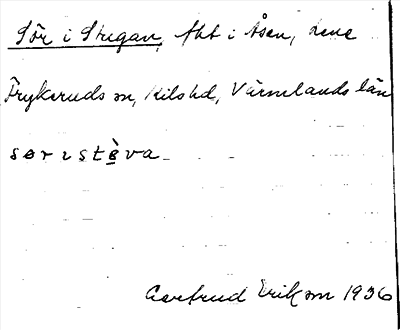 Sör i Stugan, fht i Åsen, dene
Frykeruds sn, Kils hd, Värmelands län
sør ɪ stèva
Gertrud Erikson 1936